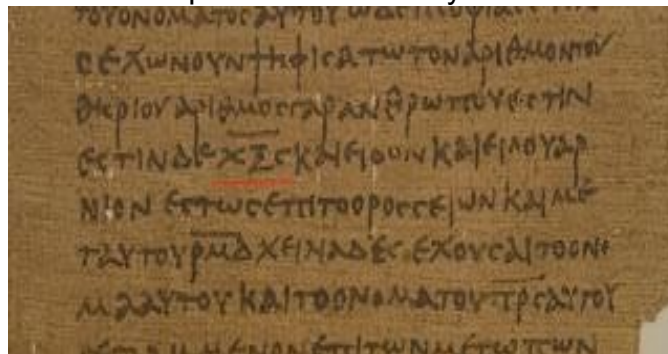 ΤΟΥΟΝΟΜΑΤΟϹΑΥΤΟΥΩΔΕΗϹΟΦΙΑΕϹΤΙΝ
ΟΕΧΩΝΟΥΝΨΗΦΙϹΑΤΩΤΟΝΑΡΙΘΜΟΝΤΟΥ
ΘΗΡΙΟΥΑΡΙΘΜΟϹΓΑΡΑΝΘΡΩΠΟΥΕϹΤΙΝ
ΕϹΤΙΝΔΕΧΞϚΚΑΙΕΙΔΟΝΚΑΙΕΙΔΟΥΑΡ
ΝΙΟΝΕϹΤΩϹΕΠΙΤΟΟΡΟϹϹΕΙΩΝΚΑΙΜΕ
ΤΑΥΤΟΥΡΜΔΧΕΙΛΙΑΔΕϹΕΧΟΥϹΑΙΤΟΟΝΟ
ΜΑΑΥΤΟΥΚΑΙΤΟΟΝΟΜΑΤΟΥΠΡϹΑΥΤΟΥ
ΓΕΓΡΑΜΜΕΝΟΝΕΠΙΤΩΝΜΕΤΩΠΩΝ